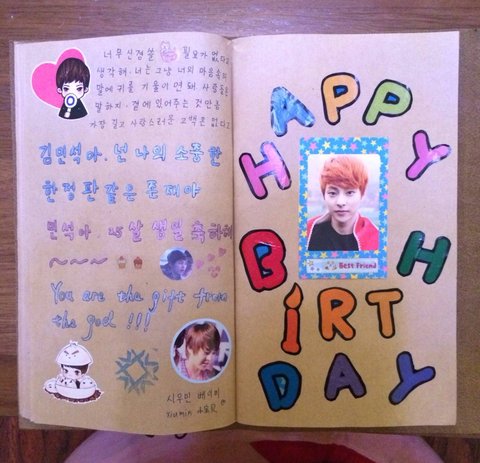 너무 신경쓸 필요가 없다고
생각해. 너는 그냥 너의 마음속의
말에 귀를 기울이면 돼. 사람들은
말하지, 곁에 있어주는 것만큼
가장 길고 사랑스러운 고백은 없다고
김민석아. 넌 나의 소중한
한정판 같은 존재야
민석아 25살 생일 축하해
~~~
You are the gift from
the god!!!
시우민 베이비
Xiumin
HAPPY
BIRTH
DAY
Best Friend